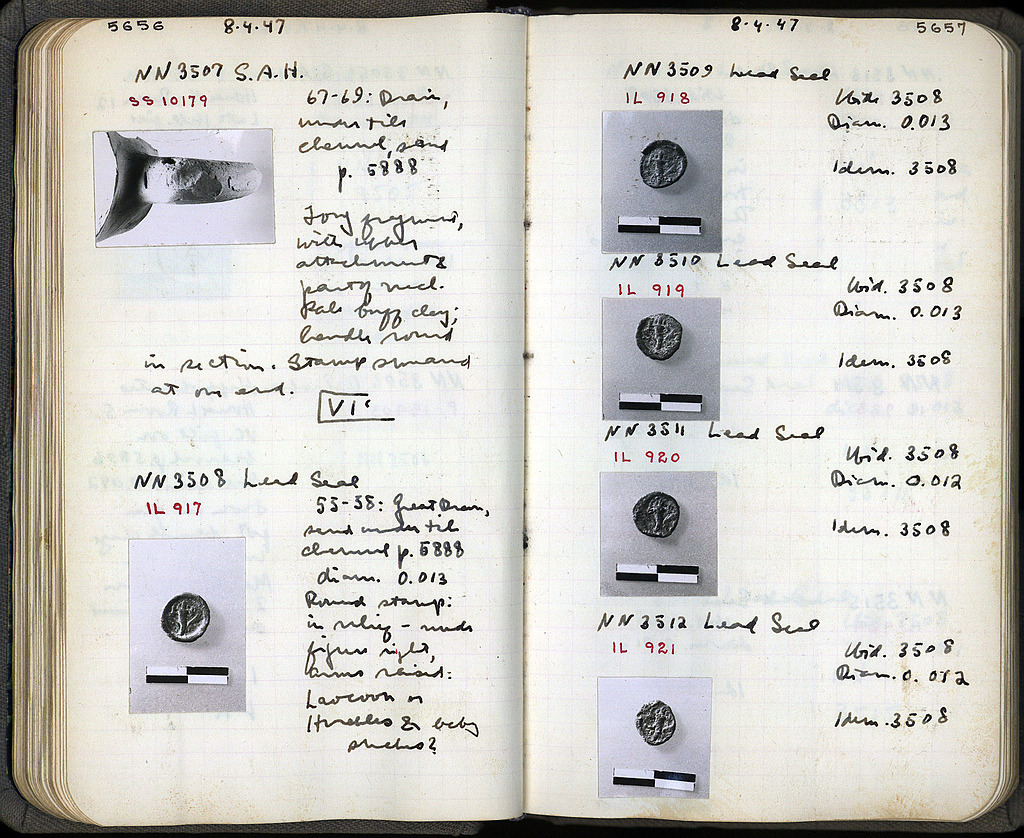 5656 8.4.47
NN 3507 S.A.H.
SS 10179
67-69: Drain,
under tile
channel, sand
p. 5888
Long fragment,
with upper
attachment &
part of neck.
Pale buff clay;
handle round
in section. Stamp smeared
at one end.
VI
NN 3508 Lead Seal
IL 917
55-58: Great Drain,
sand under tile
channel p. 5888
diam. 0.013
Round stamp:
in relief – nude
figure right,
arms raised:
Laocoon or
Herakles & baby
snakes?
8.4.47 5657
NN 3509 Lead Seal
IL 918
With 3508
Diam. 0.013
Idem. 3508
NN 3510 Lead Seal
IL 919
Ibid. 3508
Diam. 0.013
Idem. 3508
NN 3511 Lead Seal
IL 920
Ibid. 3508
Diam. 0.012
Idem. 3508
NN 3512 Lead Seal
IL 921
Ibid. 3508
Diam. 0.012
Idem. 3508